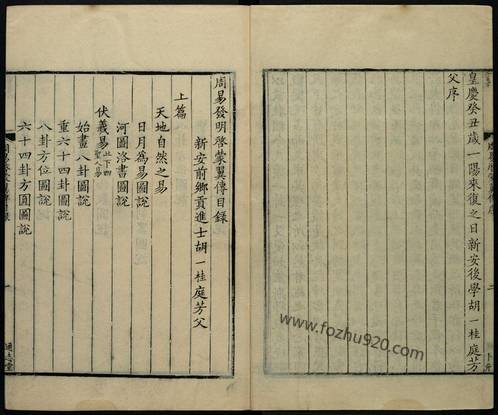 皇慶癸丑歲一陽來復之日新安後學胡一桂庭芳
父序
周易發明啓蒙翼傳目録
新安前鄉貢進士胡一桂庭芳父
上篇
天地自然之易
日月為易圖說
河圖洛書圖說
伏羲易
始畫八卦圖說
重六十四卦圖說
八卦方位圖說
六十四卦方圓圖說
一
通志堂
www.fozhu920.com